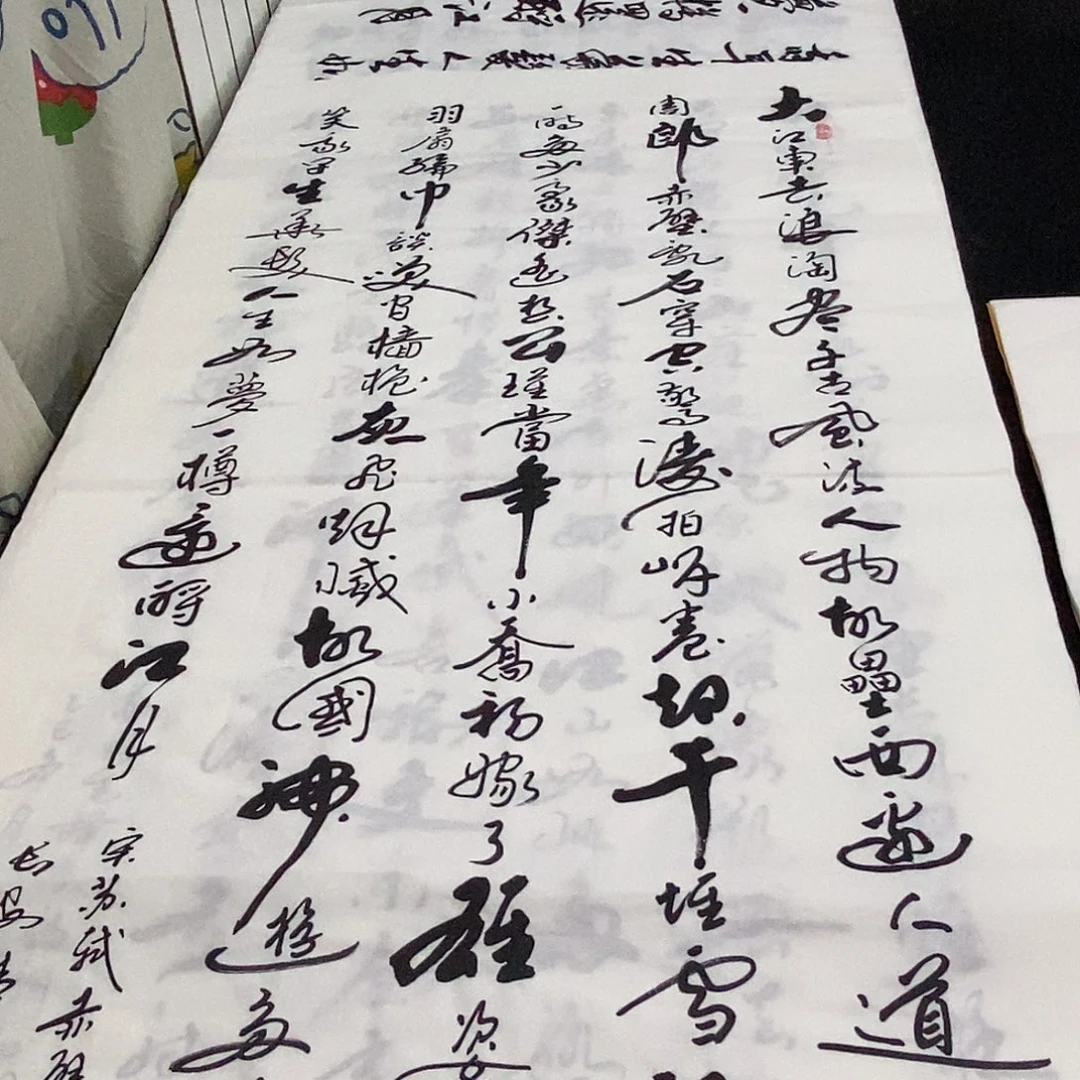 大江東去浪淘盡千古風流人物故壘西邊人道
周郎赤壁亂石穿空驚濤拍岸卷起千堆雪
時多少豪傑遙想公瑾當年小喬初嫁了雄姿
羽扇綸巾談笑間檣櫓灰飛煙滅故國神遊多
笑我早生華髮人生如夢一樽還酹江月
宋苏軾赤壁